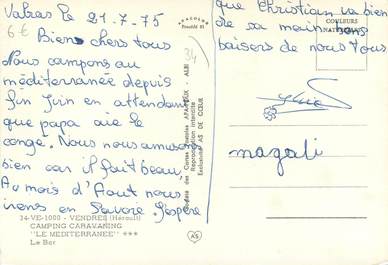 Valras le 21-7-75
6€
Biens chers tous
Nous campons au
méditerranée depuis
fin Juin en attendant
que papa aie le
congé. Nous nous amusons
bien car il fait beau,
Au mois d'Août nous
irons en Savoie. J'espère
que Christian va bien
de sa main. bons
baisers de nous tous
magali
34
34-VE-1000 - VENDRES (Hérault)
CAMPING CARAVANING
"LE MEDITERRANEE" ***
Le Bar
COULEURS
NATURELLES
Reproduction interdite
Exclusivité AS DE CŒUR
AS